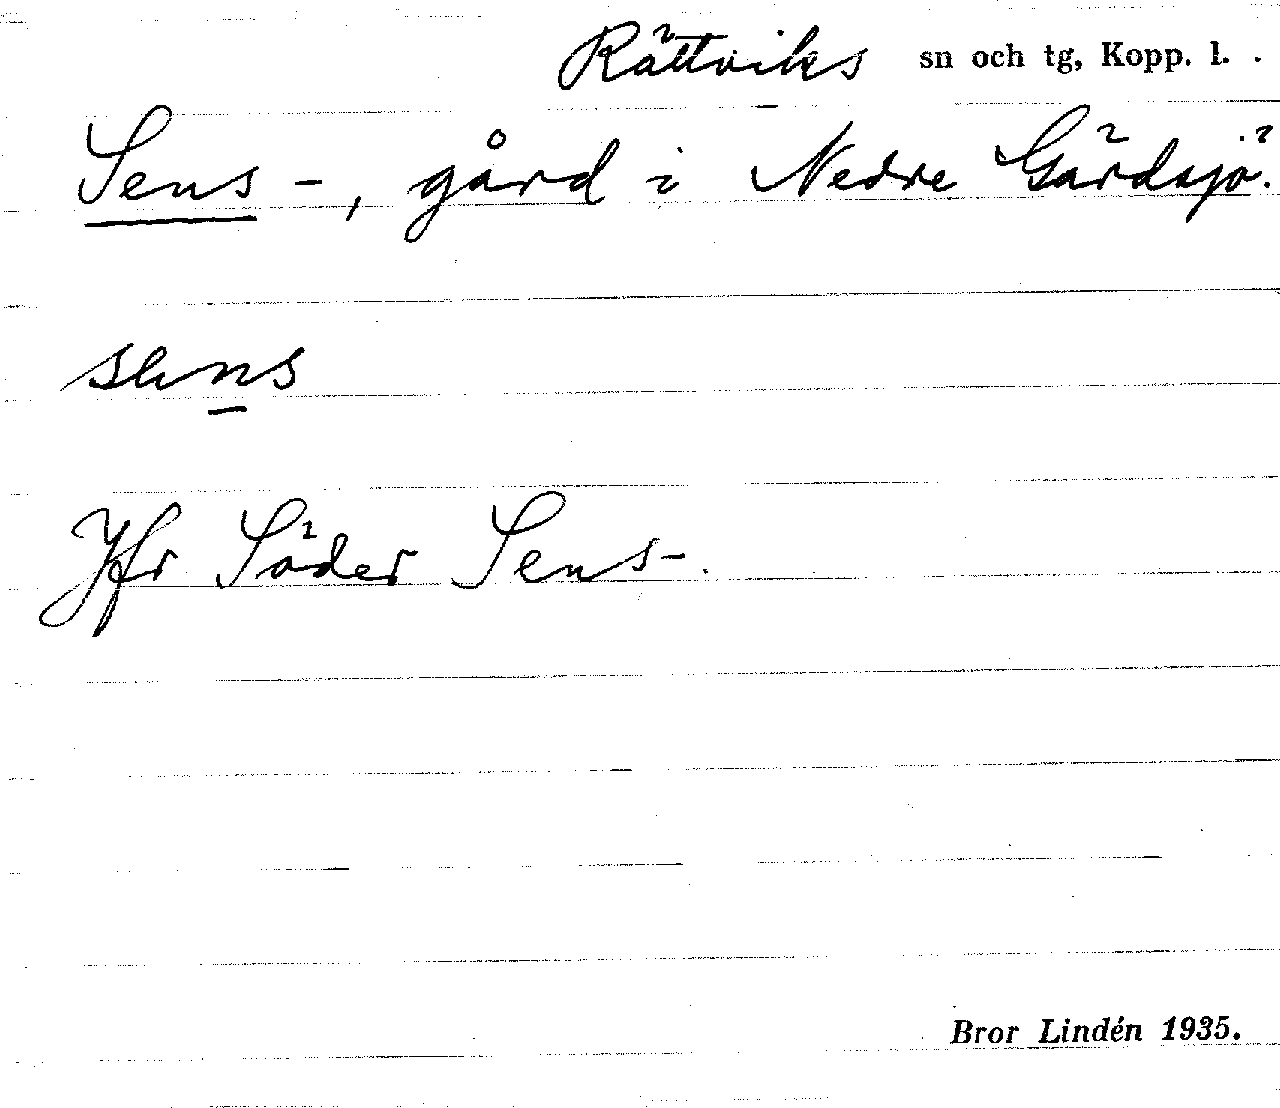 Rättviks sn och tg, Kopp. l.
Sens-, gård i Nedre Gärdsjö.
Jfr Söder Sens-.
Bror Lindén 1935.